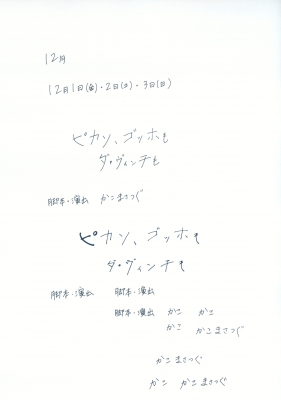 12月
12月1日(金)・2日(土)・3日(日)
ピカソ、ゴッホも
ダ・ヴィンチも
脚本・演出 かこまさつぐ
ピカソ、ゴッホも
ダ・ヴィンチも
脚本・演出 脚本・演出
脚本・演出 かこ かこ
かこ かこまさつぐ
かこまさつぐ
かこ かこまさつぐ